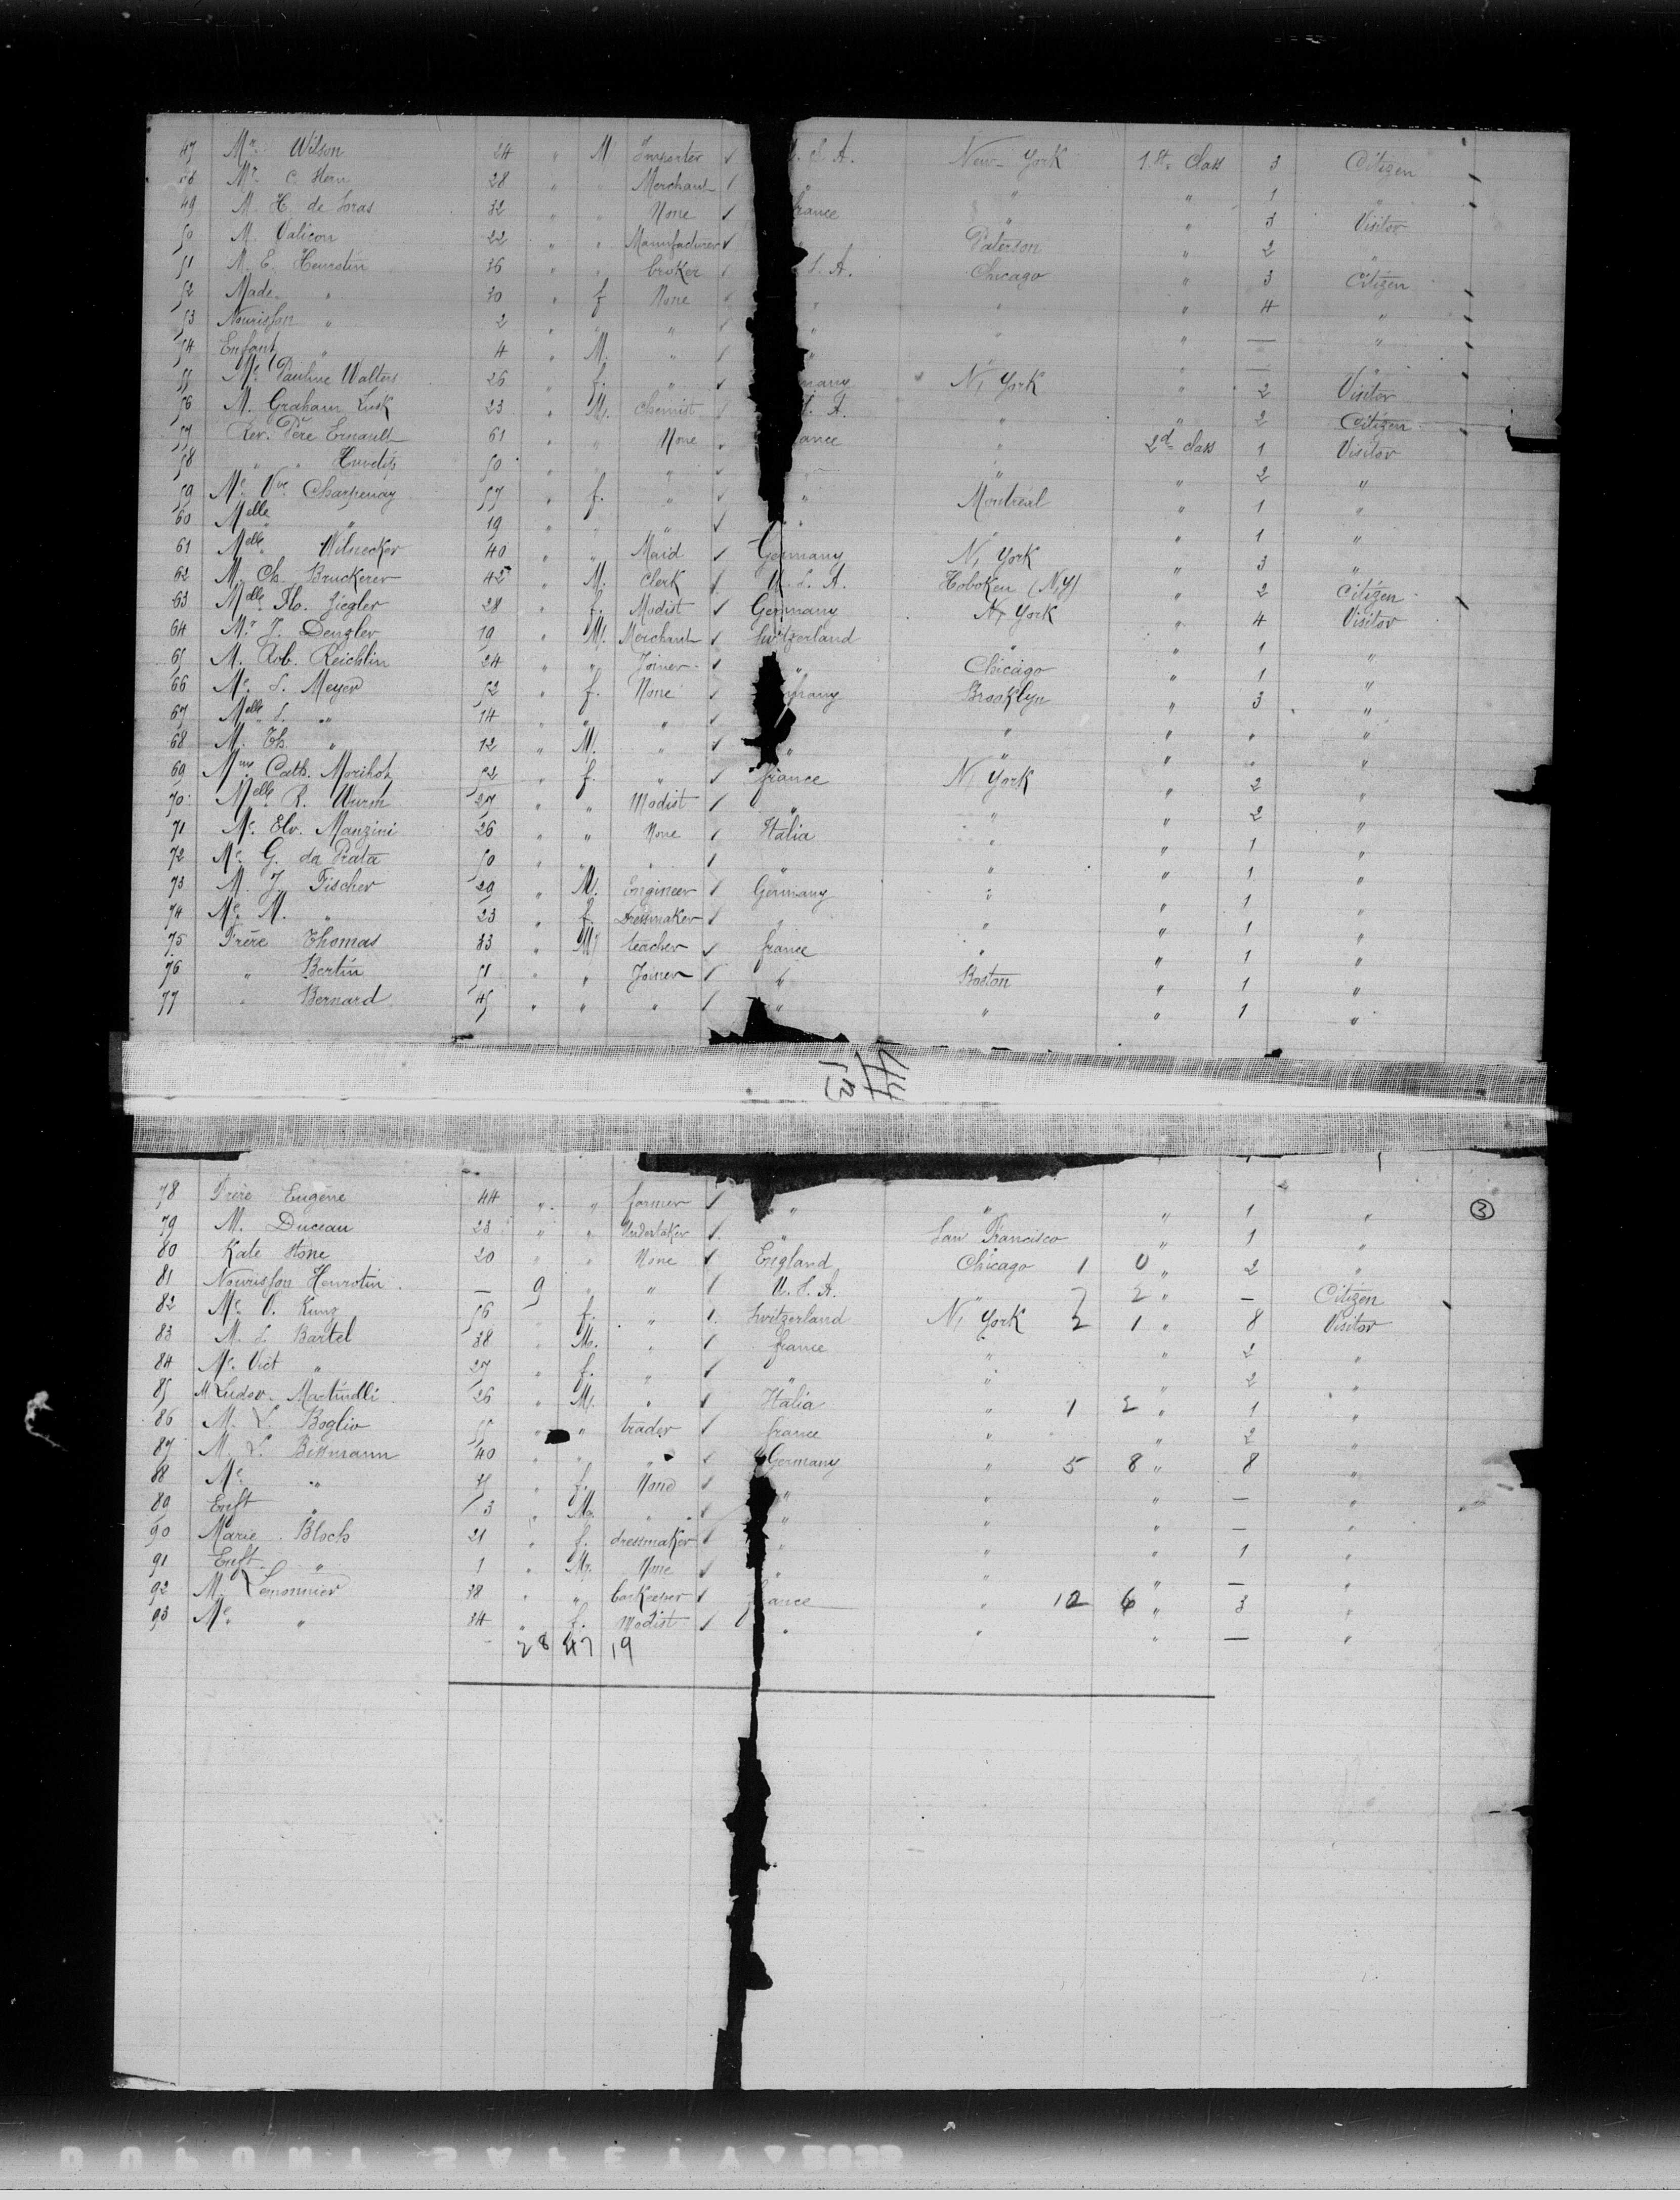 47 Mr. Wilson 24 " M Importer ✓ S. A. New-York 1st. Class 3 Citizen
48 Mr. C. Stern 28 " " Merchant ✓ " " " 1 "
49 M. H. de Soras 32 " " None ✓ france " " 3 Visitor
50 M. Valicon 22 " " Manufacturer ✓ Paterson " 2 "
51 M. E. Henrotin 36 " " broker ✓ S. A. Chicago " 3 Citizen
52 Made. " 30 " f None " " " " 4 "
53 Nourisson " 2 " " " ✓ " " " — "
54 Enfant " 4 " M. " ✓ " " " — "
55 Me. Pauline Walters 26 " f. " ✓ many N, York " 2 Visitor
56 M. Graham Lusk 23 " M. Chemist ✓ S. A. " " 2 Citizen
57 Rev. Père Ernault 61 " " None " ance " 2d. class 1 Visitor
58 " " 50 " " " " " " 2 "
59 Me. Vve. Charpenay 57 " f. " ✓ " Montreal " 1 "
60 Melle. " 19 " " " ✓ " " " 1 "
61 Melle. Wilnecker 40 " " Maid ✓ Germany N, York " 3 "
62 M. Ch. Bruckerer 42 " M. Clerk ✓ U. S. A. Hoboken (N,Y) " 2 Citizen
63 Melle. Flo. Ziegler 28 " f. Modist ✓ Germany N, York " 4 Visitor
64 Mr. J. Denzler 19 " M. Merchant ✓ Switzerland " " 1 "
65 M. Rob. Reichlin 24 " " Joiner ✓ " Chicago " 1 "
66 Me. S. Meyer 52 " f. None ✓ many Brooklyn " 3 "
67 Melle. S. " 14 " " " ✓ " " " "
68 M. Th. " 12 " M. " ✓ " " " " "
69 Mme Cath. Morihot 52 " f. " ✓ france N, York " 2 "
70 Melle. R. Wurm 27 " " Modist ✓ " " " 2 "
71 Me. Elv. Manzini 26 " " None ✓ Italia " " 1 "
72 Me. G. da Prata 50 " " " ✓ " " " 1 "
73 M. J. Fischer 29 " M. Engineer ✓ Germany " " 1 "
74 Me. M. " 23 " f. Dressmaker ✓ " " " 1 "
75 Frère Thomas 33 " M teacher ✓ france " " 1 "
76 " Bertin 51 " " Joiner ✓ " Boston " 1 "
77 " Bernard 45 " " " ✓ " " " 1 "
44
13
78 Frère Eugène 44 " " farmer ✓ " " " 1 "
3
79 M. Duceau 23 " " Undertaker ✓ " San Francisco " 1 "
80 Kate Stone 20 " " None ✓ England Chicago 1 0 " 2 "
81 Nourisson Henrotin — 9 " " ✓ U. S. A. " 2 " — Citizen
82 Me. O. Kunz 56 " f. " ✓ Switzerland N, York 2 1 " 8 Visitor
83 M. S. Bartel 38 " M. " ✓ france " " 2 "
84 Me. Vict " 27 " f. " ✓ " " " 2 "
85 M Ludov. 26 " M. " ✓ Italia " 1 2 " 1 "
86 M. L. Boglio 55 " " trader ✓ france " " 2 "
87 M. L. Bessmann 40 " " " ✓ Germany " 5 8 " 8 "
88 Me. " 35 " f. None ✓ " " " — "
89 Enft " 3 " M. " ✓ " " " — "
90 Marie Bloch 21 " f. dressmaker ✓ " " " 1 "
91 Enft. " 1 " M. None ✓ " " " — "
92 M. Lemonnier 38 " " barkeeper ✓ france " 12 6 " 3 "
93 Me. " 34 " f. Modist ✓ " " " — "
28 47 19
DUPONT SAFETY